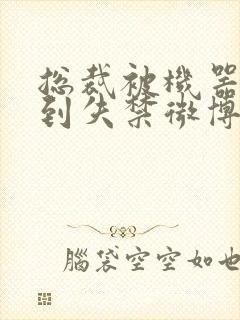 总裁被機器
到失禁微博
腦袋空空如也